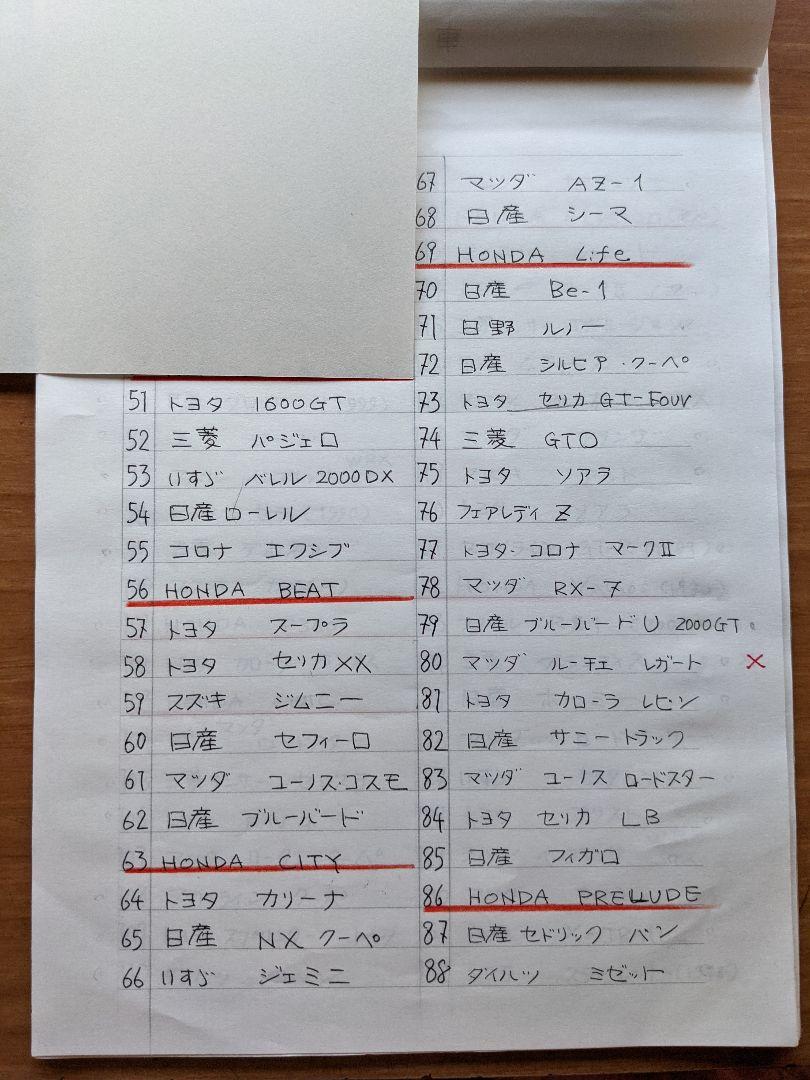 51 トヨタ 1600GT
52 三菱 パジェロ
53 いすゞ ベレル 2000DX
54 日産 ローレル
55 コロナ エクシブ
56 HONDA BEAT
57 トヨタ スープラ
58 トヨタ セリカXX
59 スズキ ジムニー
60 日産 セフィーロ
61 マツダ ユーノス・コスモ
62 日産 ブルーバード
63 HONDA CITY
64 トヨタ カリーナ
65 日産 NX クーペ
66 いすゞ ジェミニ
67 マツダ AZ-1
68 日産 シーマ
69 HONDA Life
70 日産 Be-1
71 日野 ルノー
72 日産 シルビア・クーペ
73 トヨタ セリカ GT-FOUR
74 三菱 GTO
75 トヨタ ソアラ
76 フェアレディ Z
77 トヨタ・コロナ マークII
78 マツダ RX-7
79 日産 ブルーバードU 2000GT
80 マツダ ルーチェ レガート ×
81 トヨタ カローラ レビン
82 日産 サニートラック
83 マツダ ユーノス ロードスター
84 トヨタ セリカ LB
85 日産 フィガロ
86 HONDA PRELUDE
87 日産 セドリック バン
88 ダイハツ ミゼット